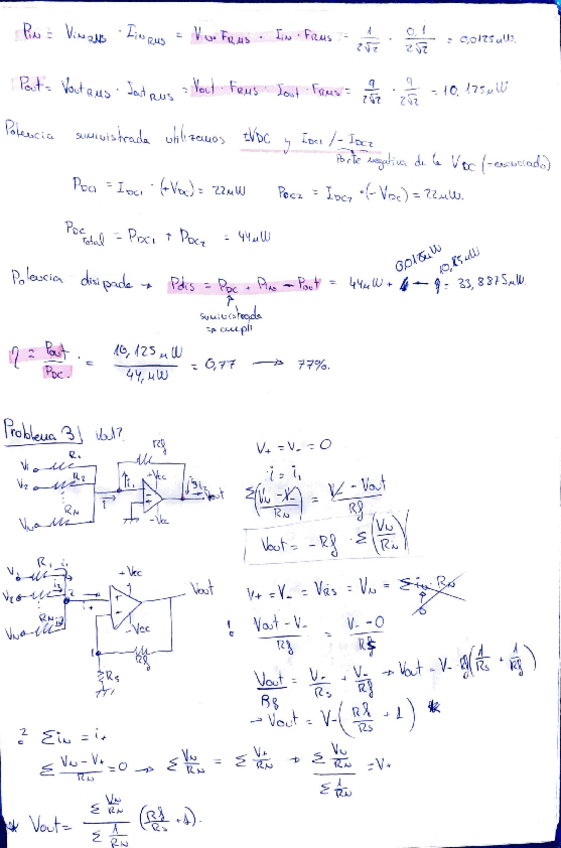 P_IN = V_in RMS · I_in RMS = V_in · F_RMS · I_IN · F_RMS = 1/(2√2) · 0,1/(2√2) = 0,0125 µW.
P_out = V_out RMS · I_out RMS = V_out · F_RMS · I_out · F_RMS = 9/(2√2) · 9/(2√2) = 10,125 µW
Potencia suministrada utilizamos ±VDC y I_DC1 / -I_DC2
Parte negativa de la V_DC (-enunciado)
P_DC1 = I_DC1 · (+V_DC) = 22 µW P_DC2 = I_DC2 · (-V_DC) = 22 µW.
P_DC Total = P_DC1 + P_DC2 = 44 µW
0,0125 µW 10,125 µW
Potencia disipada → P_dis = P_DC + P_IN - P_out = 44 µW + - = 33,8875 µW
suministrada
η = P_out / P_DC = 10,125 µW / 44 µW = 0,77 → 77%.
Problema 3) Vout?
V1 R1 Rf
V2 R2 i1 +Vcc Vout
VN RN i -Vcc
V+ = V- = 0
i = i1
Σ(VN - V-)/RN = (V- - Vout)/Rf
Vout = -Rf · Σ(VN/RN)
V1 R1 i1 +Vcc Vout
V2 i+
VN RN -Vcc
Rf
Rs
V+ = V- = V_RS = VN = Σ iN · RN
0
1. (Vout - V-)/Rf = (V- - 0)/Rs
Vout/Rf = V-/Rs + V-/Rf → Vout = V- Rf(1/Rs + 1/Rf)
→ Vout = V-(Rf/Rs + 1) *
2. Σ iN = i+
Σ (VN - V+)/RN = 0 → Σ VN/RN = Σ V+/RN → (Σ VN/RN)/(Σ 1/RN) = V+
* Vout = (Σ VN/RN)/(Σ 1/RN) (Rf/Rs + 1).